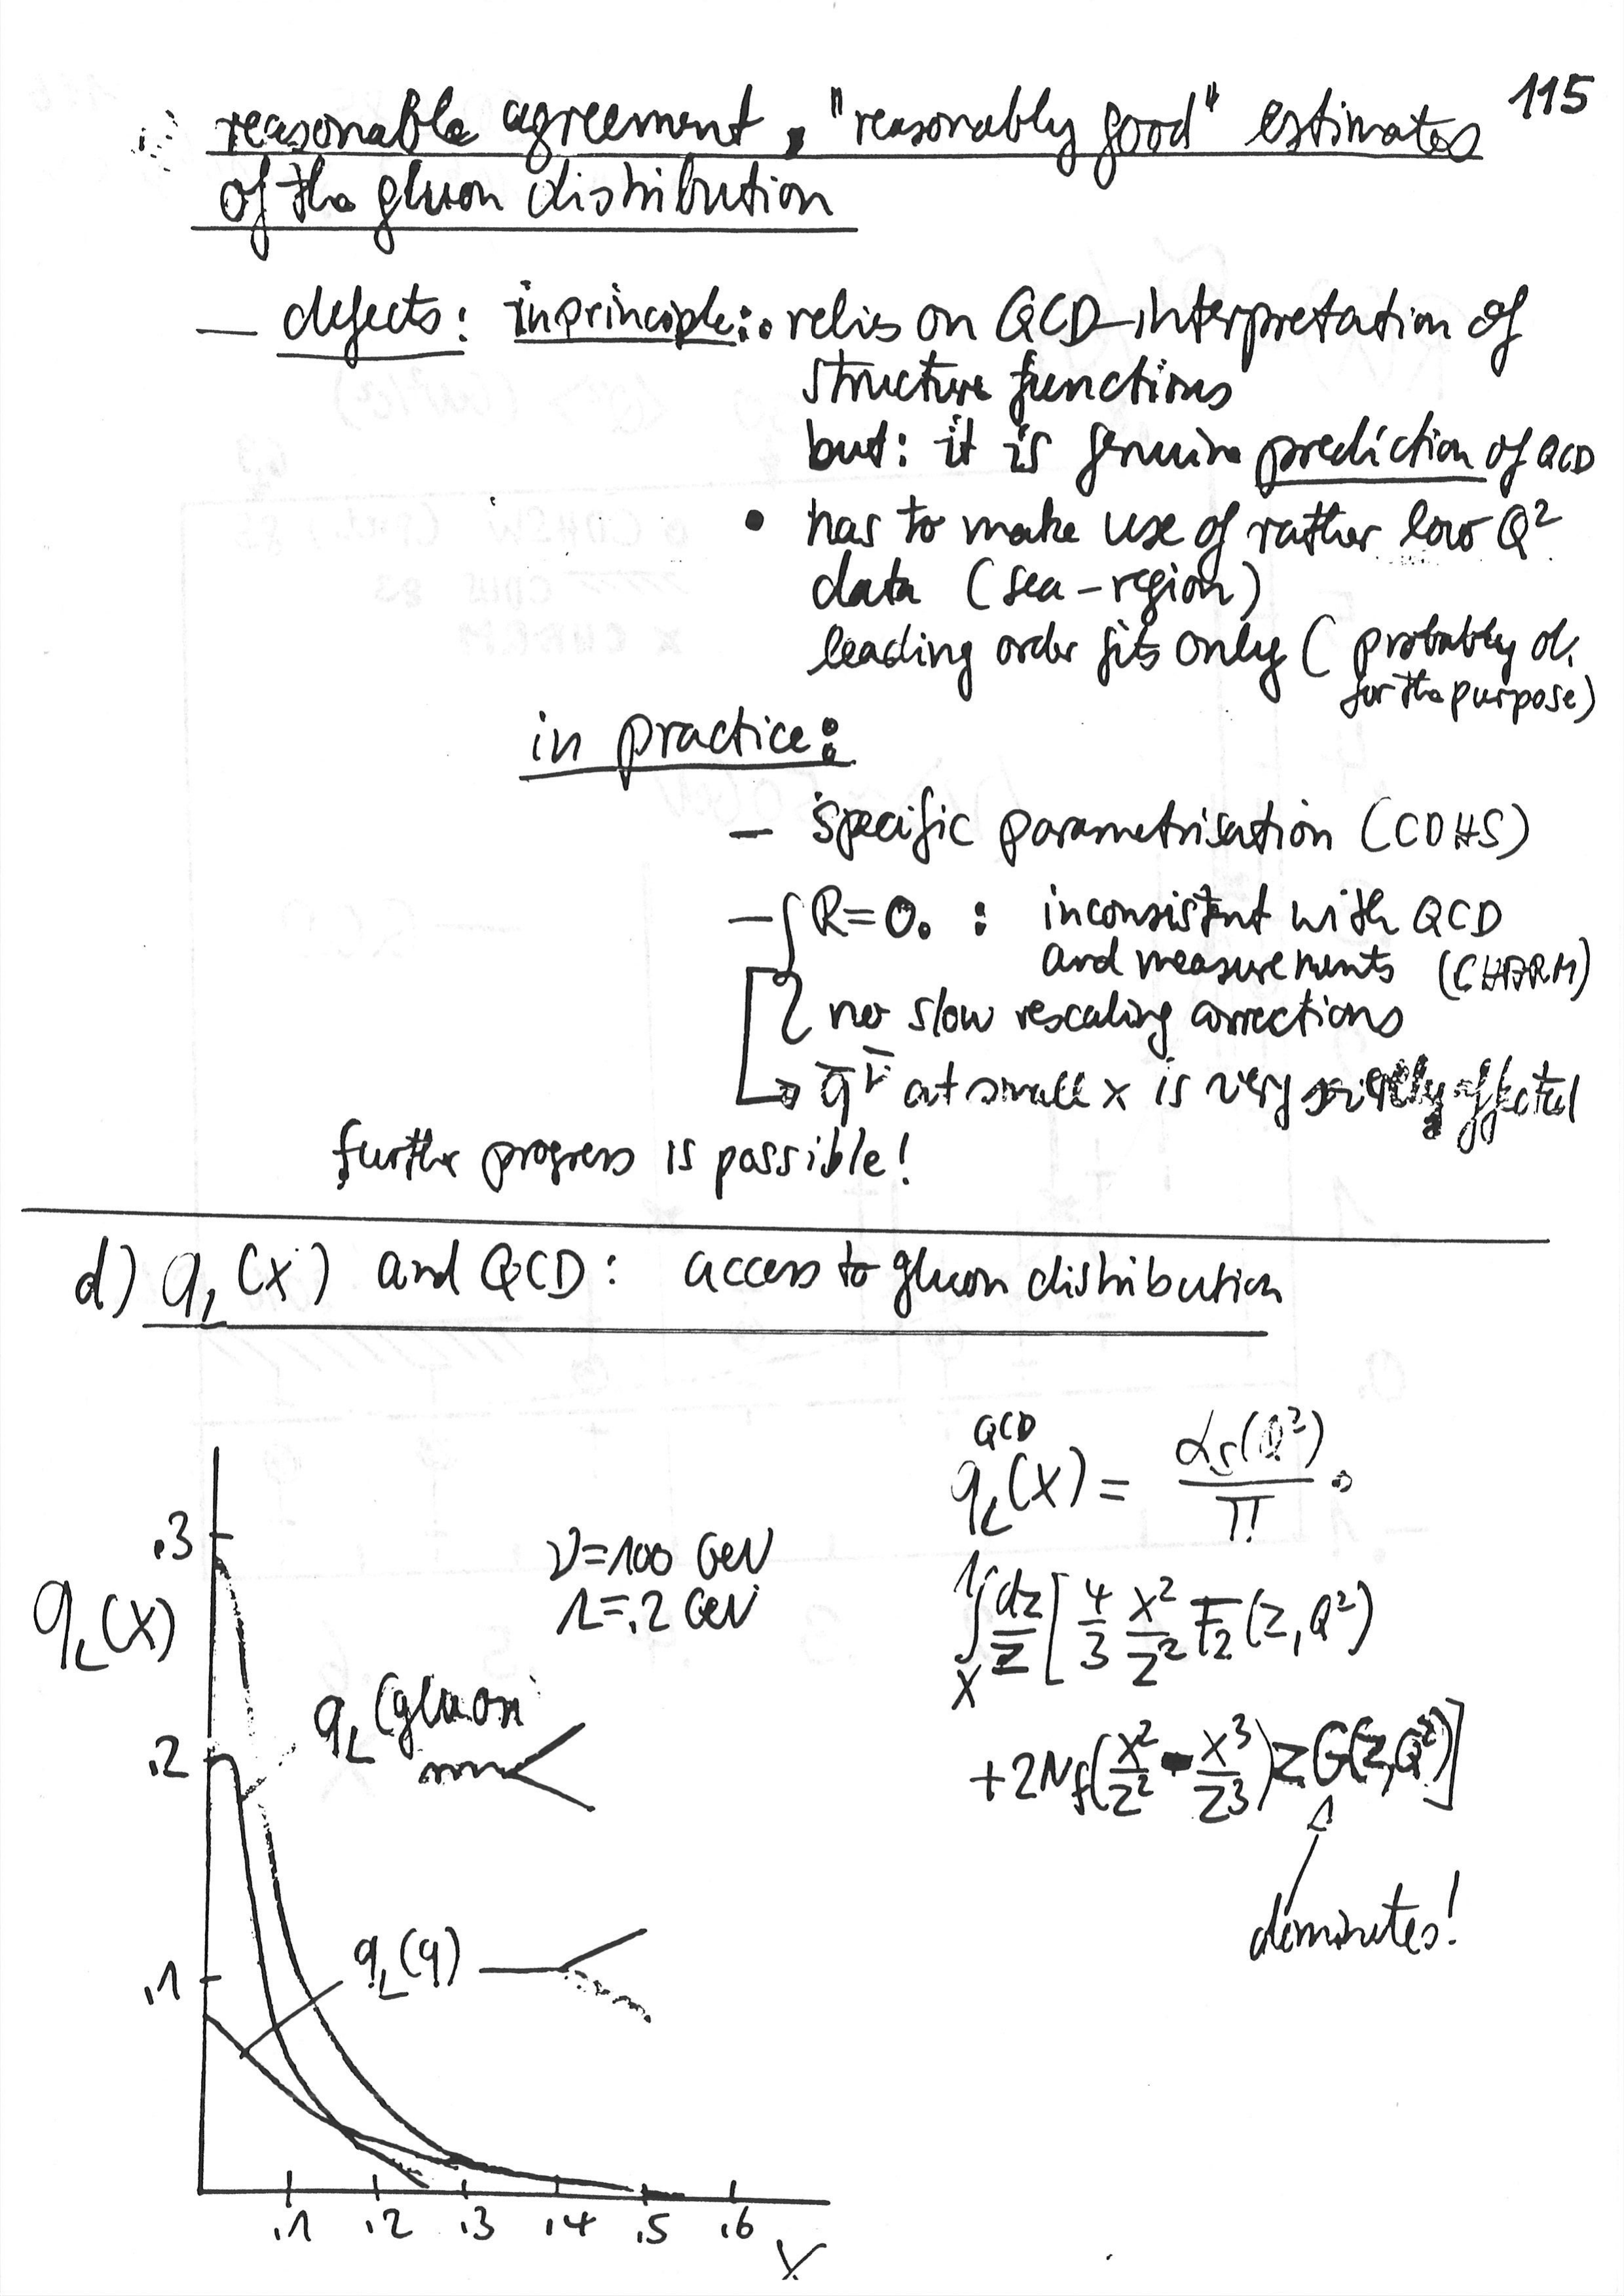 115
reasonable agreement, "reasonably good" estimates
of the gluon distribution
— defects: in principle: • relies on QCD-interpretation of
structure functions
but: it is genuine prediction of QCD
• has to make use of rather low Q²
data (sea-region)
leading order fits only (probably o.
for the purpose)
in practice:
— specific parametrisation (CDHS)
— R=0. : inconsistent with QCD
and measurements (CHARM)
no slow rescaling corrections
→ q̄^ν̄ at small x is very affected
further progress is possible!
d) q_L(x) and QCD: access to gluon distribution
q_L^QCD(x) = α_s(Q²)/π ·
∫_x^1 dz/z [ 4/3 x²/z² F₂(z,Q²)
+2N_f(x²/z² - x³/z³) z G(z,Q²)]
dominates!
.3
ν=100 GeV
Λ=.2 GeV
q_L(x)
q_L(gluon)
.2
q_L(q)
.1
.1 .2 .3 .4 .5 .6
x